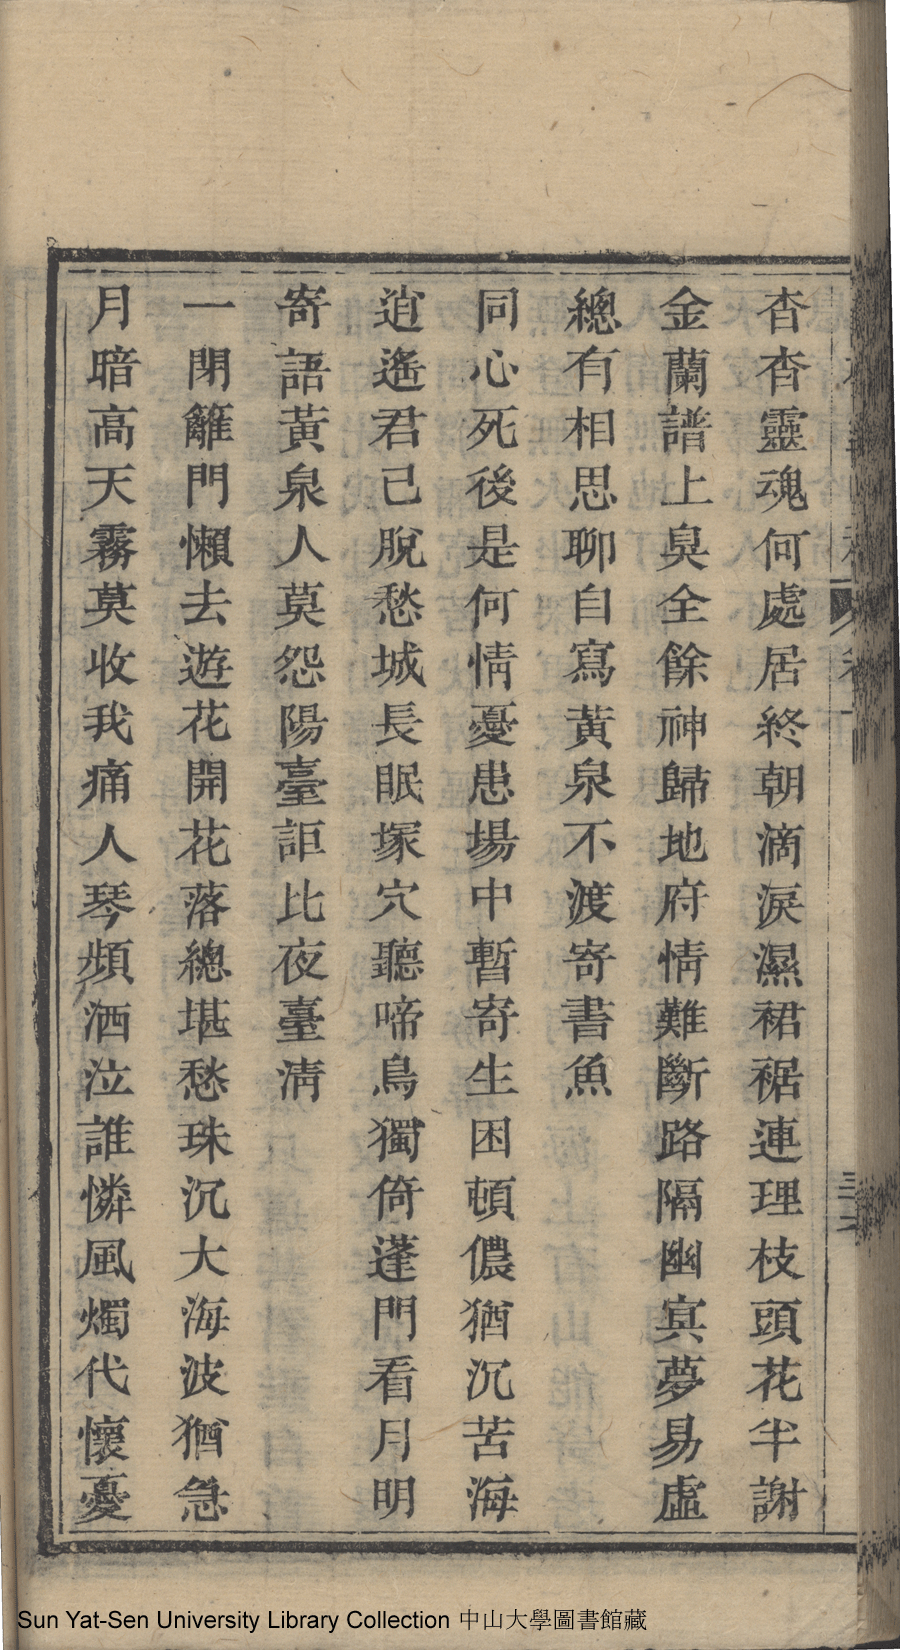 杳杳靈魂何處居終朝滴淚濕裙裾連理枝頭花半謝
金蘭譜上臭全餘神歸地府情難斷路隔幽㝠夢易虛
總有相思聊自寫黃泉不渡寄書魚
同心死後是何情憂患場中暫寄生困頓儂猶沉苦海
逍遙君已脫愁城長眠塚穴聽啼鳥獨倚蓬門看月明
寄語黃泉人莫怨陽臺詎比夜臺淸
一閉籬門懶去遊花開花落總堪愁珠沉大海波猶急
月暗高天霧莫收我痛人琴頻洒泣誰憐風燭代懷憂
Sun Yat-Sen University Library Collection 中山大學圖書館藏